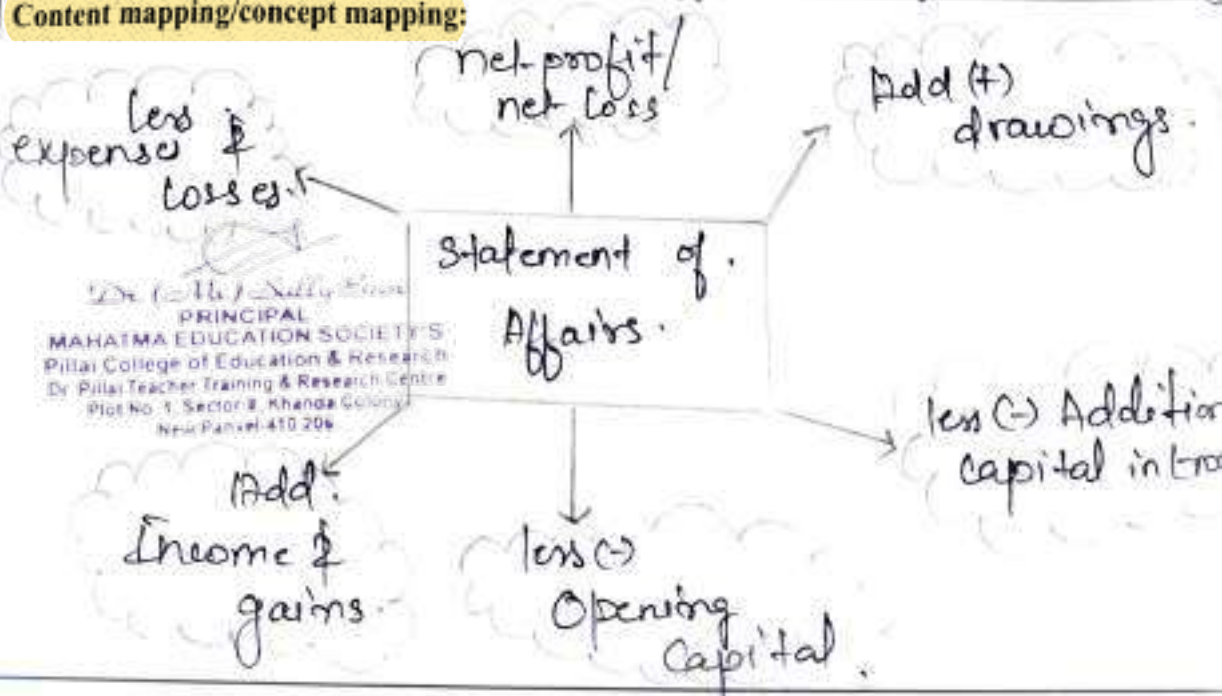 Content mapping/concept mapping:
net profit/
net loss
Add (+)
drawings.
Less
expenses &
losses.
Statement of.
Affairs.
Dr
PRINCIPAL
MAHATMA EDUCATION SOCIETY'S
Pillai College of Education & Research
Dr Pillai Teacher Training & Research Centre
Plot No. 1 Sector 8, Khanda Colony
New Panvel-410 206
less (-) Addition
capital intro
Add:
Income &
gains.
less (-)
Opening
Capital.